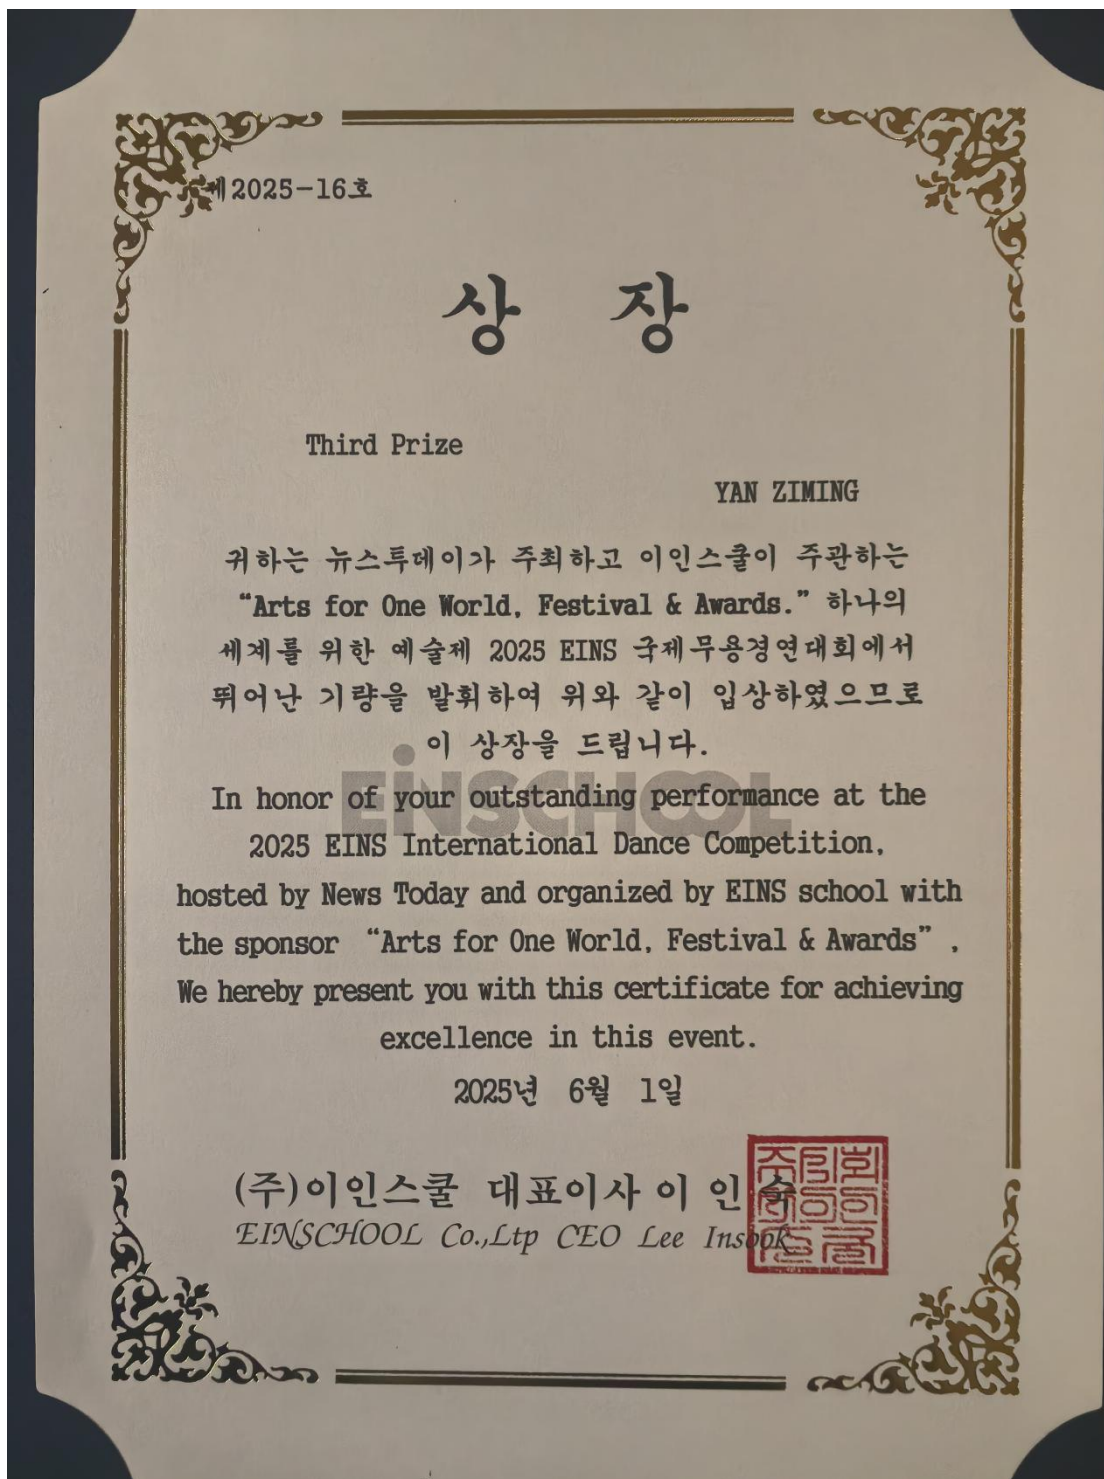 제2025-16호
상 장
Third Prize
YAN ZIMING
귀하는 뉴스투데이가 주최하고 이인스쿨이 주관하는
“Arts for One World, Festival & Awards.” 하나의
세계를 위한 예술제 2025 EINS 국제무용경연대회에서
뛰어난 기량을 발휘하여 위와 같이 입상하였으므로
이 상장을 드립니다.
EINSCHOOL
In honor of your outstanding performance at the
2025 EINS International Dance Competition,
hosted by News Today and organized by EINS school with
the sponsor “Arts for One World, Festival & Awards” ,
We hereby present you with this certificate for achieving
excellence in this event.
2025년 6월 1일
(주)이인스쿨 대표이사 이 인 숙
EINSCHOOL Co.,Ltp CEO Lee Insook